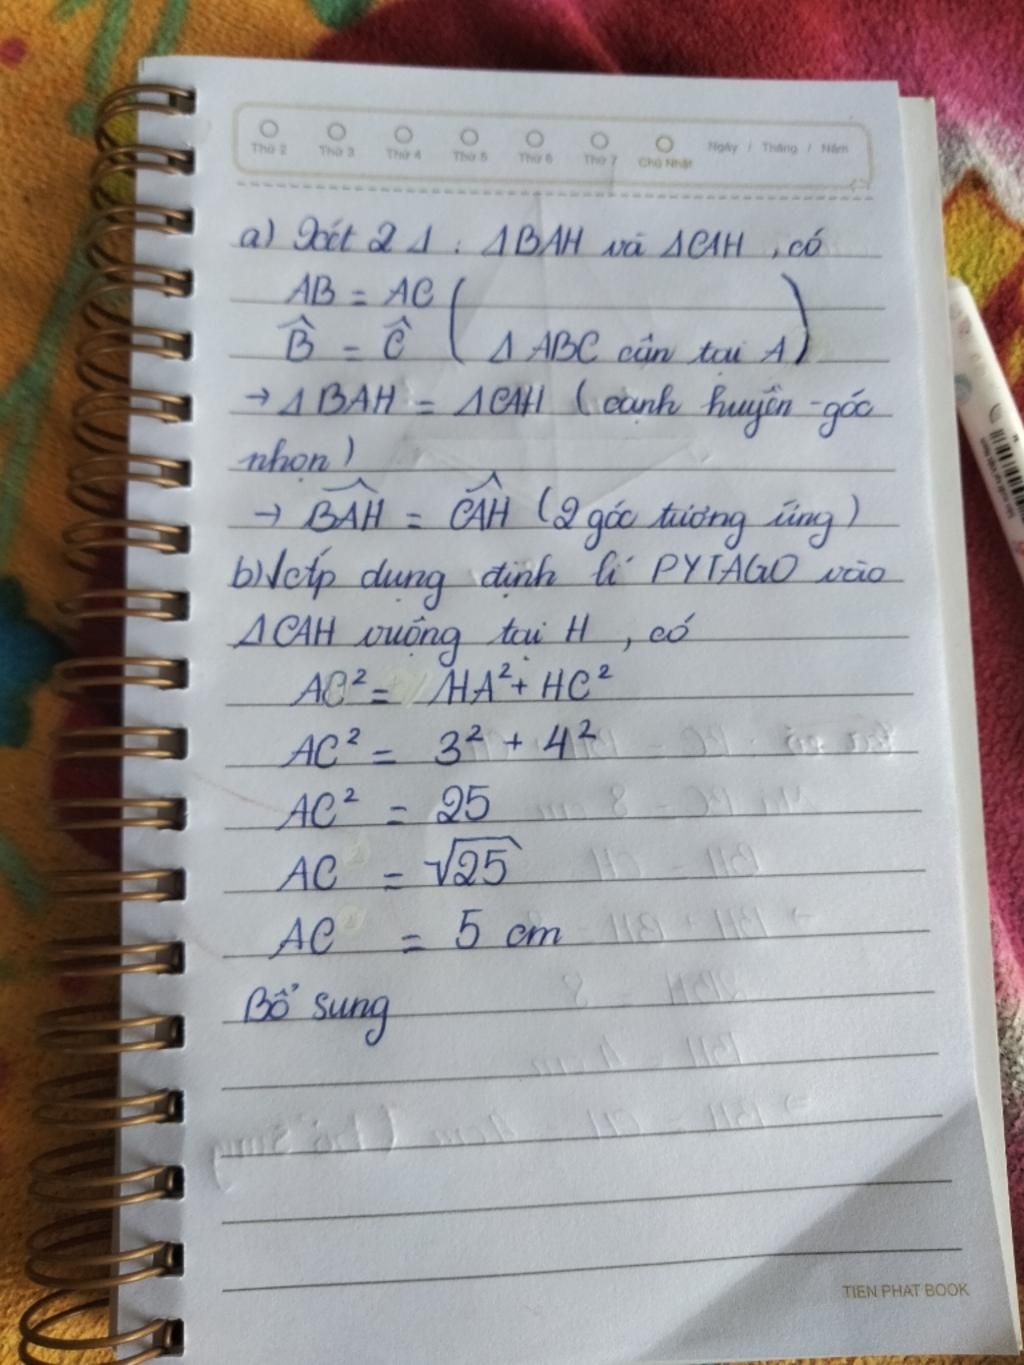 Thứ 2 Thứ 3 Thứ 4 Thứ 5 Thứ 6 Thứ 7 Chủ Nhật Ngày / Tháng / Năm
a) Xét 2 Δ : ΔBAH và ΔCAH , có
AB = AC (
B̂ = Ĉ ( Δ ABC cân tại A)
→ Δ BAH = ΔCAH ( cạnh huyền - góc
nhọn )
→ BAH = CAH ( 2 góc tương ứng )
b) Áp dụng định lí PYTAGO vào
ΔCAH vuông tại H , có
AC² = HA² + HC²
AC² = 3² + 4²
AC² = 25
AC = √25
AC = 5 cm
Bổ sung
TIEN PHAT BOOK